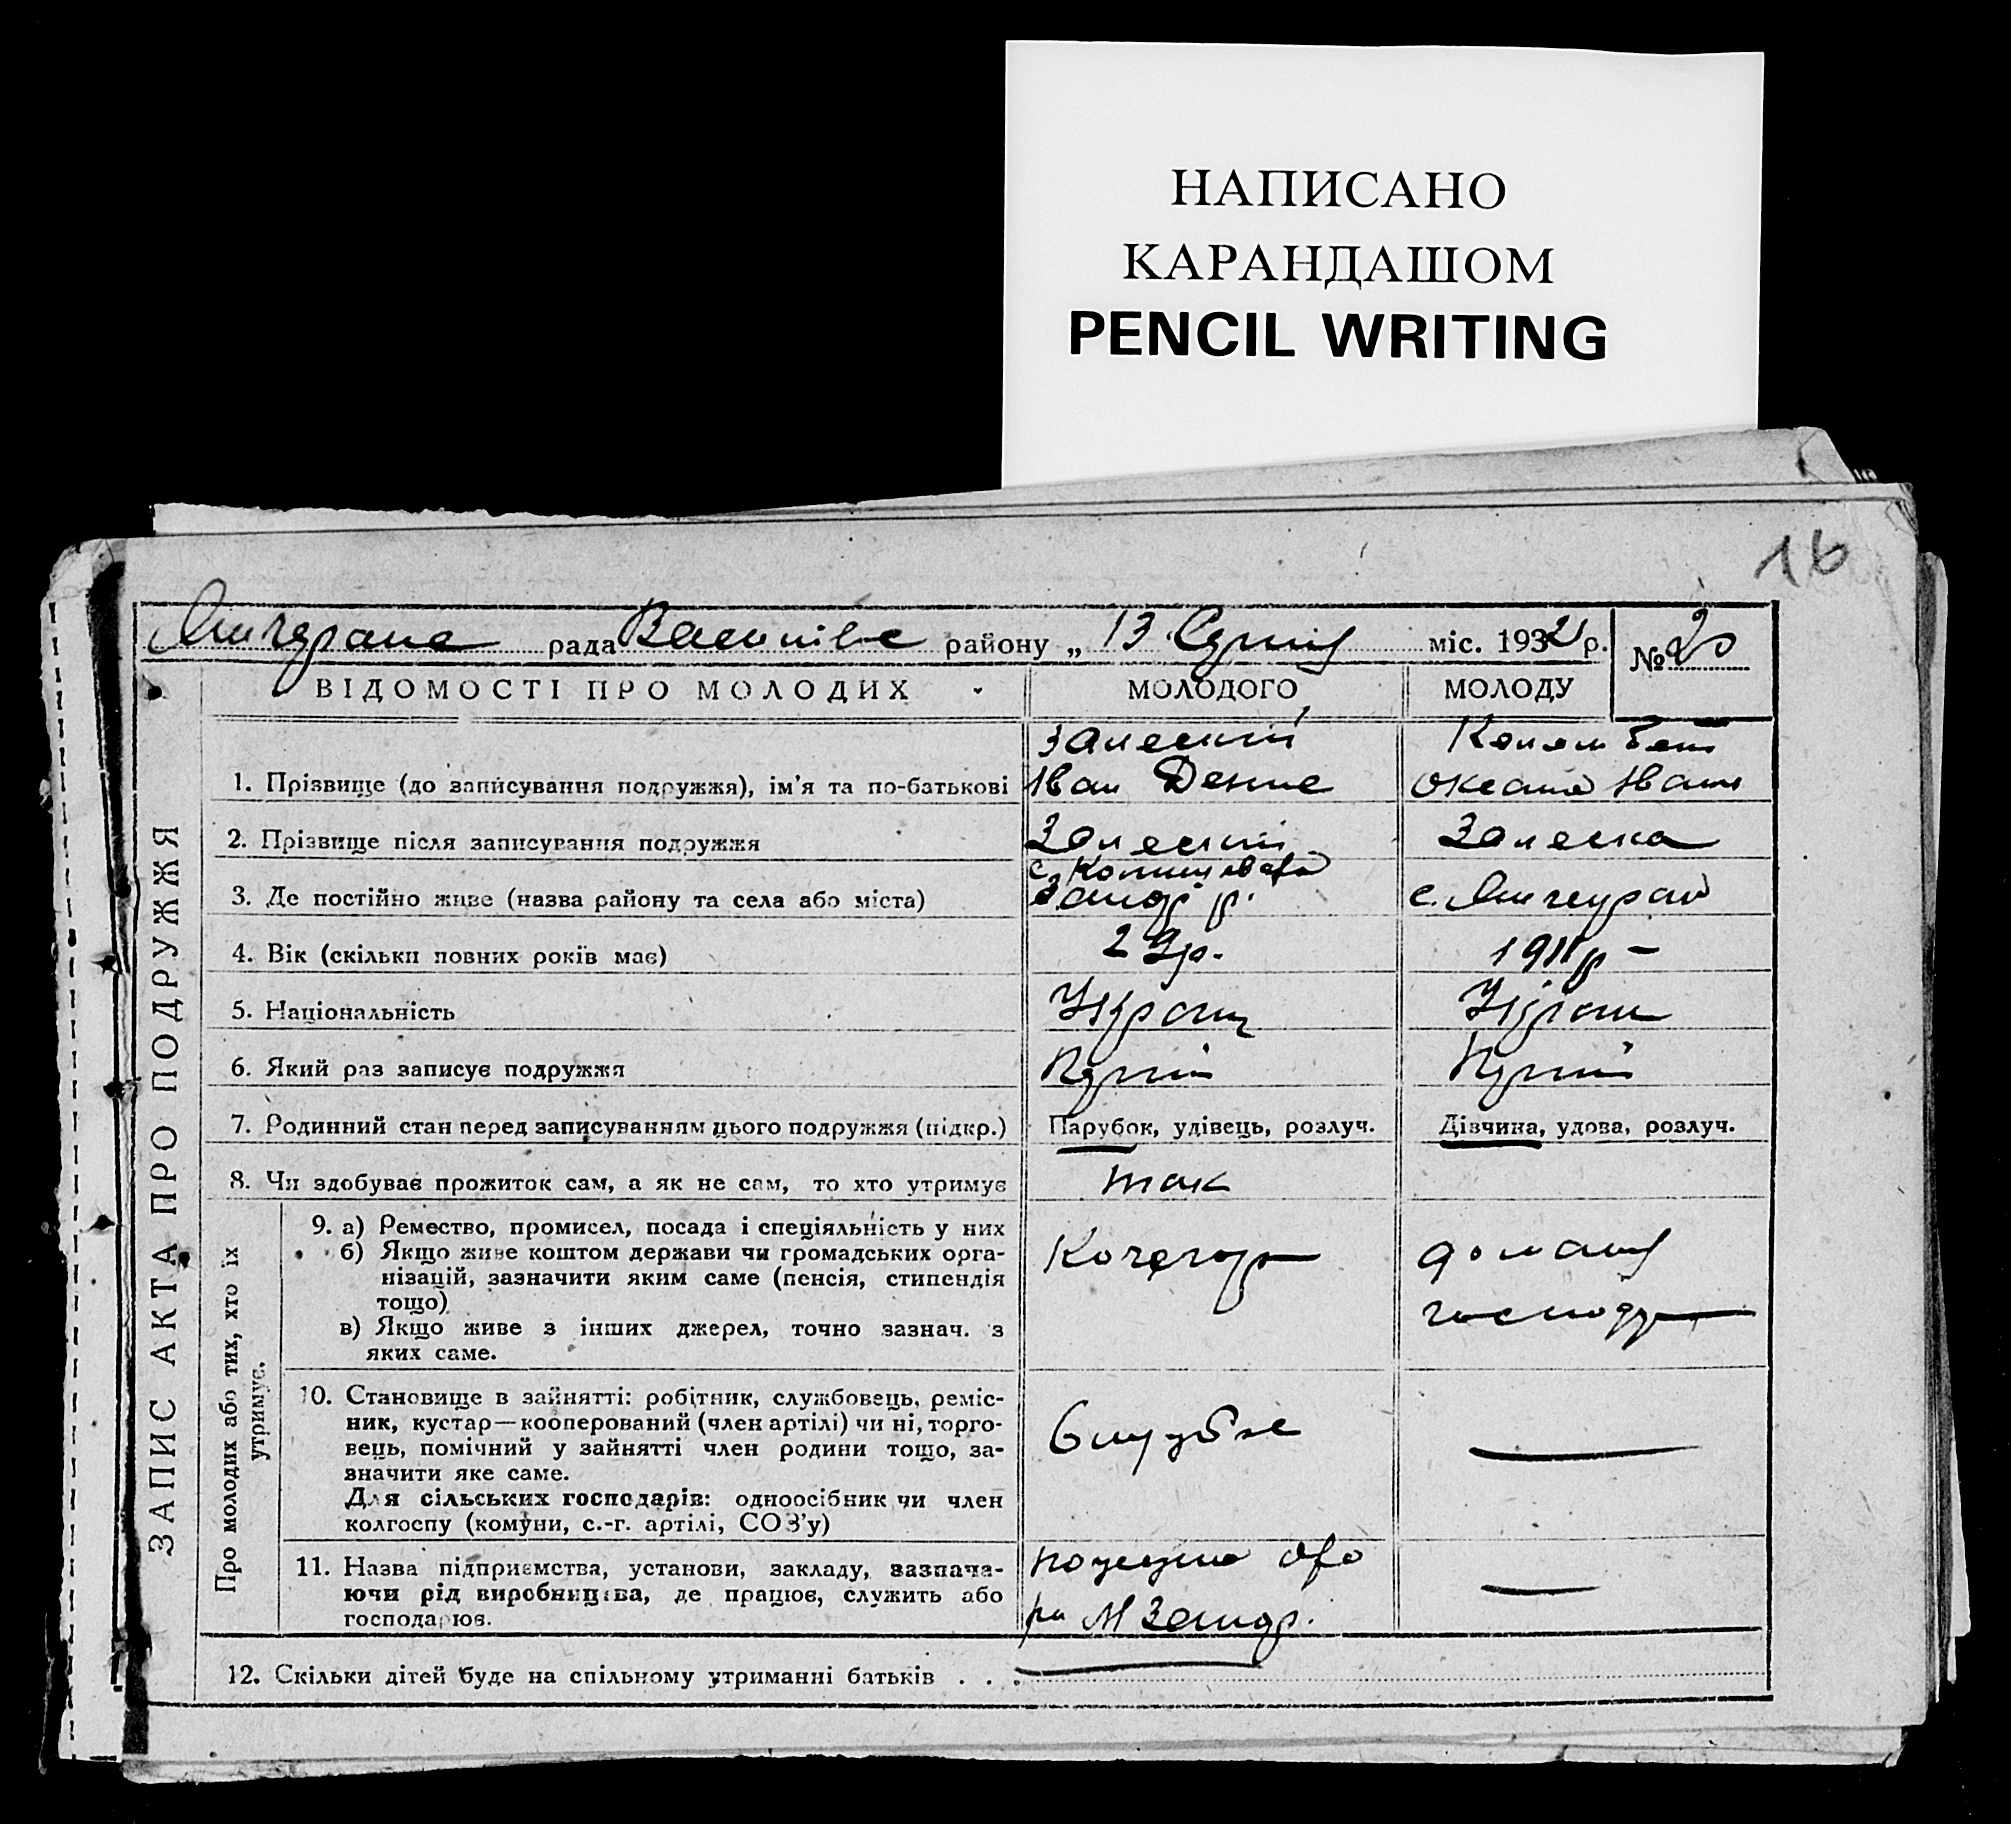 НАПИСАНО
КАРАНДАШОМ
PENCIL WRITING
16
рада району „ 13 міс. 1932 р. № 20
ЗАПИС АКТА ПРО ПОДРУЖЖЯ
ВІДОМОСТІ ПРО МОЛОДИХ МОЛОДОГО МОЛОДУ
Залеский
1. Прізвище (до записування подружжя), ім'я та по-батькові Іван Дение Оксана Іван
2. Прізвище після записування подружжя Залеский Залеска
3. Де постійно живе (назва району та села або міста) с.
4. Вік (скільки повних років має) 29 р. 1911 р –
5. Національність Украін Украін
6. Який раз записує подружжя Перший Перший
7. Родинний стан перед записуванням цього подружжя (підкр.) Парубок, удівець, розлуч. Дівчина, удова, розлуч.
8. Чи здобуває прожиток сам, а як не сам, то хто утримує так
Про молодих або тих, хто їх
утримує.
9. а) Ремество, промисел, посада і спеціяльність у них
б) Якщо живе коштом держави чи громадських орга-
нізацій, зазначити яким саме (пенсія, стипендія
тощо)
в) Якщо живе з інших джерел, точно зазнач. з
яких саме.
Кочегар
домашн
господар
10. Становище в зайнятті: робітник, службовець, реміс-
ник, кустар—кооперований (член артілі) чи ні, торго-
вець, помічний у зайнятті член родини тощо, за-
значити яке саме.
Для сільських господарів: одноосібник чи член
колгоспу (комуни, с.-г. артілі, СОЗ'у)
Службе
11. Назва підприємства, установи, закладу, зазнача-
ючи рід виробництва, де працює, служить або
господарює.
12. Скільки дітей буде на спільному утриманні батьків . . .